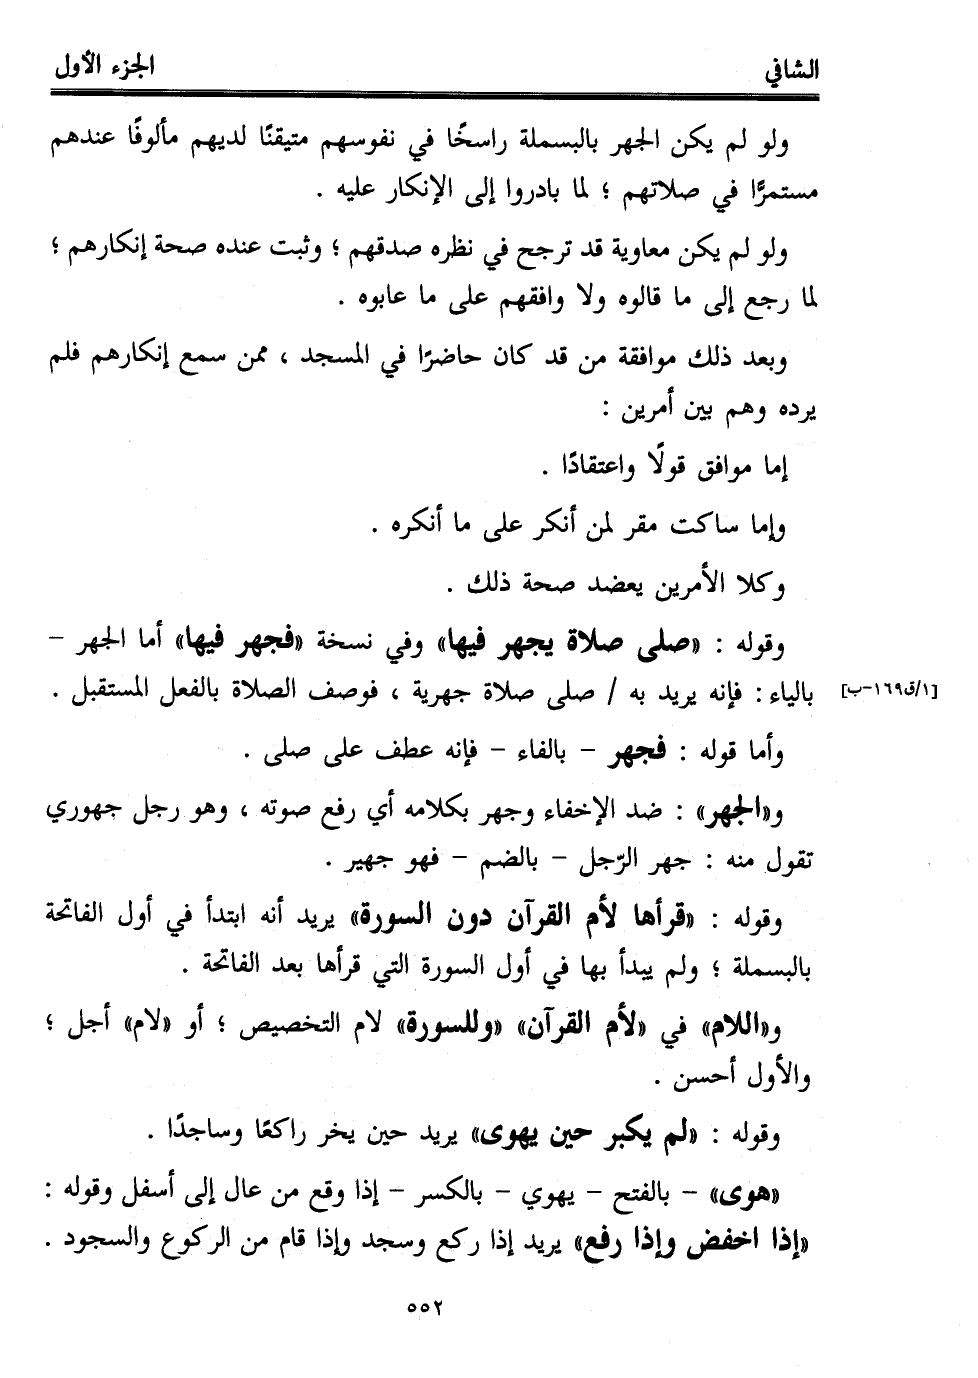 الشافي
الجزء الأول
ولو لم يكن الجهر بالبسملة راسخًا في نفوسهم متيقنًا لديهم مألوفًا عندهم
مستمرًّا في صلاتهم ؛ لما بادروا إلى الإنكار عليه .
ولو لم يكن معاوية قد ترجح في نظره صدقهم ؛ وثبت عنده صحة إنكارهم ؛
لما رجع إلى ما قالوه ولا وافقهم على ما عابوه .
وبعد ذلك موافقة من قد كان حاضرًا في المسجد ، ممن سمع إنكارهم فلم
يرده وهم بين أمرين :
إما موافق قولًا واعتقادًا .
وإما ساكت مقر لمن أنكر على ما أنكره .
وكلا الأمرين يعضد صحة ذلك .
وقوله : «صلى صلاة يجهر فيها» وفي نسخة «فجهر فيها» أما الجهر –
بالياء : فإنه يريد به / صلى صلاة جهرية ، فوصف الصلاة بالفعل المستقبل .
[١/ق١٦٩-ب]
وأما قوله : فجهر – بالفاء – فإنه عطف على صلى .
و«الجهر» : ضد الإخفاء وجهر بكلامه أي رفع صوته ، وهو رجل جهوري
تقول منه : جهر الرّجل – بالضم – فهو جهير .
وقوله : «قرأها لأم القرآن دون السورة» يريد أنه ابتدأ في أول الفاتحة
بالبسملة ؛ ولم يبدأ بها في أول السورة التي قرأها بعد الفاتحة .
و«اللام» في «لأم القرآن» «وللسورة» لام التخصيص ؛ أو «لام» أجل ؛
والأول أحسن .
وقوله : «لم يكبر حين يهوى» يريد حين يخر راكعًا وساجدًا .
«هوى» – بالفتح – يهوي – بالكسر – إذا وقع من عال إلى أسفل وقوله :
«إذا اخفض وإذا رفع» يريد إذا ركع وسجد وإذا قام من الركوع والسجود .
٥٥٢